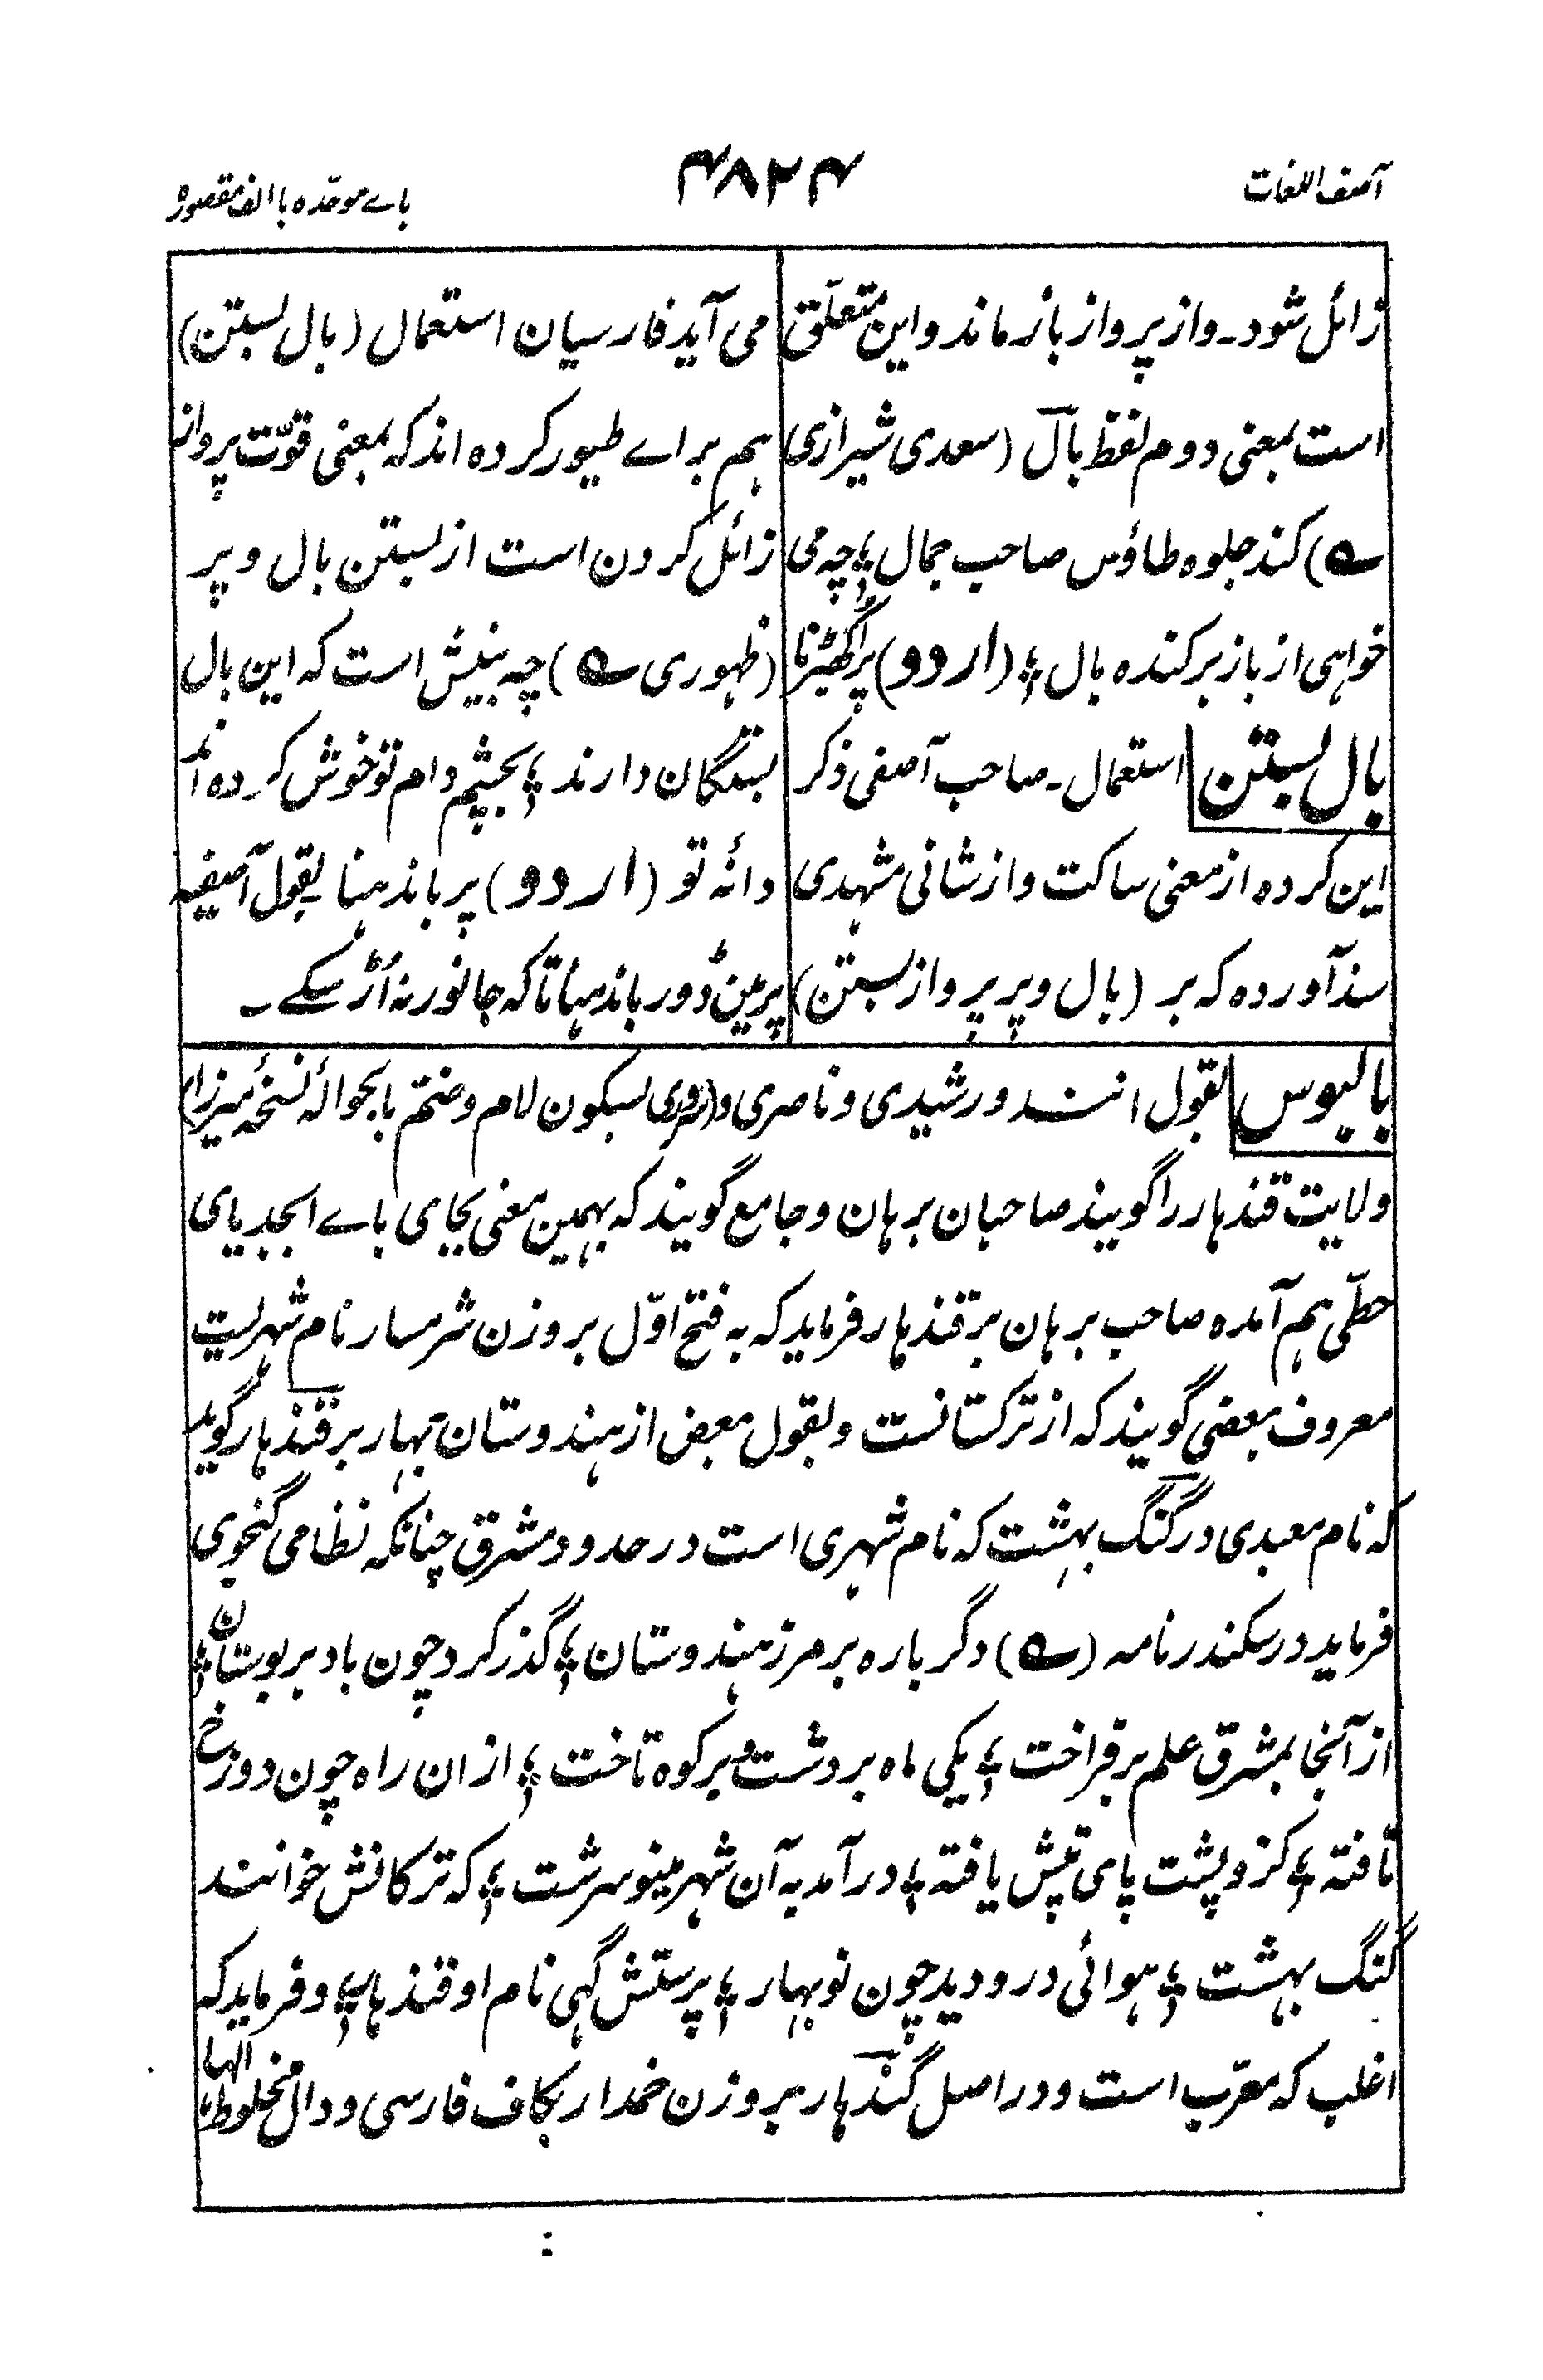 آصف اللغات
۴۸۲۴
باے موحّدہ باالف مقصورہ
زائل شود۔ واز پرواز باز ماند و این متعلّق
است بمعنی دوم لفظ بال (سعدی شیرازی
ے) کند جلوہ طاؤس صاحب جمال ؛ چہ می
خواہی از باز برکندہ بال ؛ (اردو) پر اُکھیڑنا
بال بستن استعمال۔ صاحب آصفی ذکر
این کردہ از معنی ساکت و از شانی مشہدی
سند آوردہ کہ بر (بال و پر پرواز بستن)
می آید فارسیان استعمال (بال بستن)
ہم براے طیور کردہ اند کہ بمعنی قوّت پرواز
زائل کردن است از بستن بال و پر
(ظہوری ے) چہ بینش است کہ این بال
بستگان دارند ؛ بچشم دام تو خوش کردہ اند
دانۂ تو (اردو) پر باندہنا بقول آصفیہ
پرمین ڈور باندہنا تاکہ جانور نہ اُڑ سکے ۔
بالبوس بقول انند و رشیدی و ناصری و (سروری بسکون لام و ضمّ با بحوالۂ نسخۂ میرزا)
ولایت قندہار را گویند صاحبان برہان و جامع گویند کہ بہمین معنی بجای باے ابجد یای
حطّی ہم آمدہ صاحب برہان بر قندہار فرماید کہ بہ فتح اوّل بر وزن شرمسار نام شہریست
معروف بعضی گویند کہ از ترکستانست و بقول بعض از ہندوستان بہار بر قندہار گوید
کہ نام معبدی در گنگ بہشت کہ نام شہری است در حدود مشرق چنانکہ نظامی گنجوی
فرماید در سکندر نامہ (ے) دگر بارہ بر مرز ہندوستان ؛ گذر کرد چون باد بر بوستان ؛
از آنجا بمشرق علم بر فراخت ؛ یکی ماہ بر دشت و بر کوہ تاخت ؛ ازان راہ چون دوزخ
تافتہ ؛ کزو پشت پای تپش یافتہ ؛ در آمد بہ آن شہر مینو سرشت ؛ کہ ترکانش خوانند
گنگ بہشت ؛ ہوائی درو دید چون نوبہار ؛ پرستش گہی نام او قندہار ؛ و فرماید کہ
اغلب کہ معرّب است و در اصل گندہار بر وزن خمدار بکاف فارسی و دال مخلوط الہا